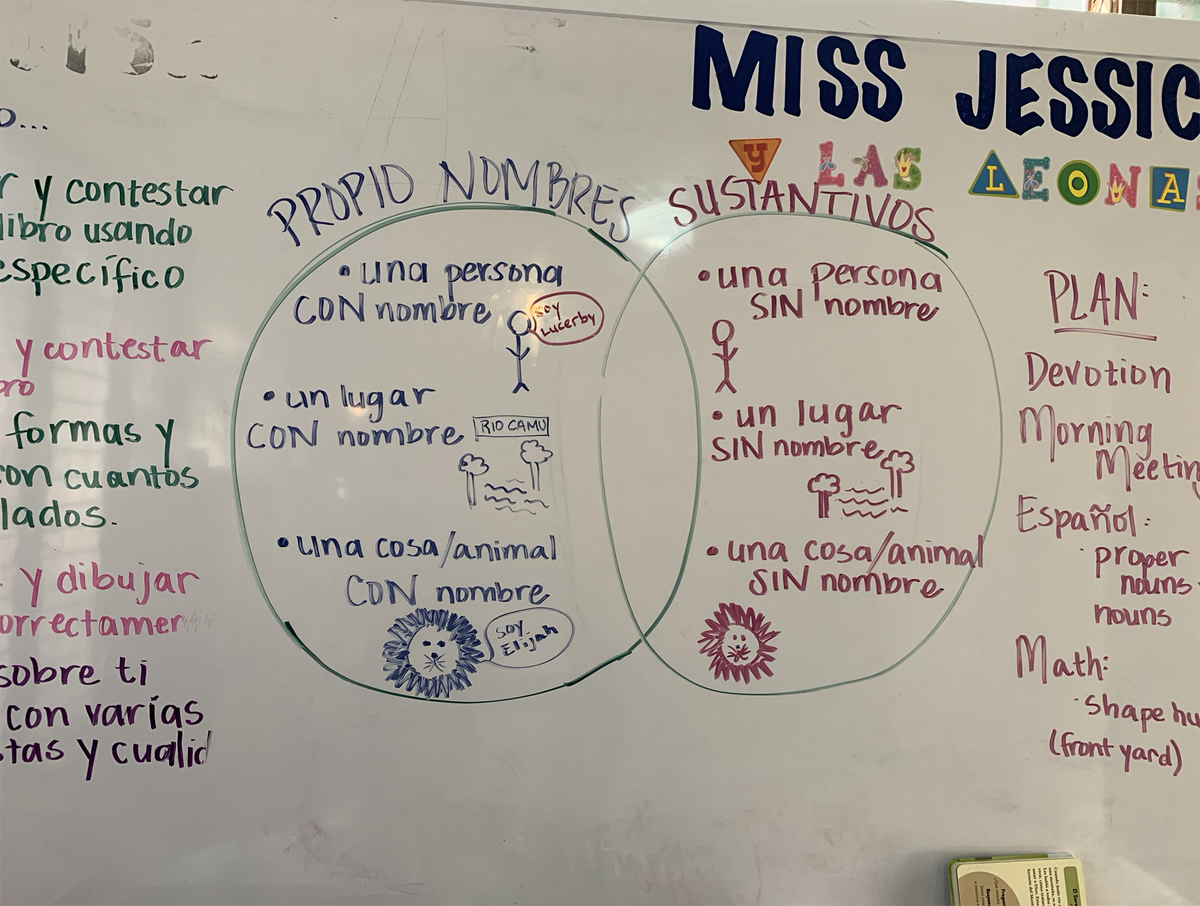 MISS JESSIC
Y LAS LEONAS
r y contestar
libro usando
específico
y contestar
formas y
con cuantos
lados.
y dibujar
orrectamer
sobre ti
con varias
stas y cualid
PROPIO NOMBRES
• una persona
CON nombre
soy
Lucerby
• un lugar
CON nombre
RIO CAMU
• una cosa/animal
CON nombre
soy
Elijah
SUSTANTIVOS
• una persona
SIN nombre
• un lugar
SIN nombre
• una cosa/animal
SIN nombre
PLAN:
Devotion
Morning
Meetin
Español:
· proper
nouns
nouns
Math:
· shape hu
(front yard)